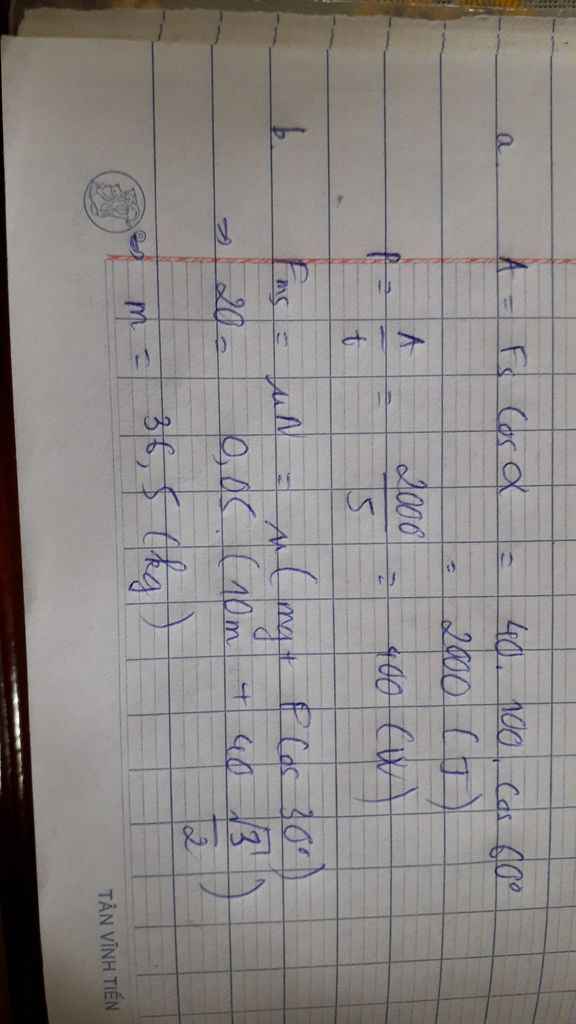 a. A = Fs Cos α = 40. 100. Cos 60°
= 2000 (J)
P = A/t = 2000/5 = 400 (W)
b. Fms = μN = μ(mg + P Cos 30°)
⇒ 20 = 0,05. (10m + 40 √3/2)
⇔ m = 36,5 (kg)
TÂN VĨNH TIẾN